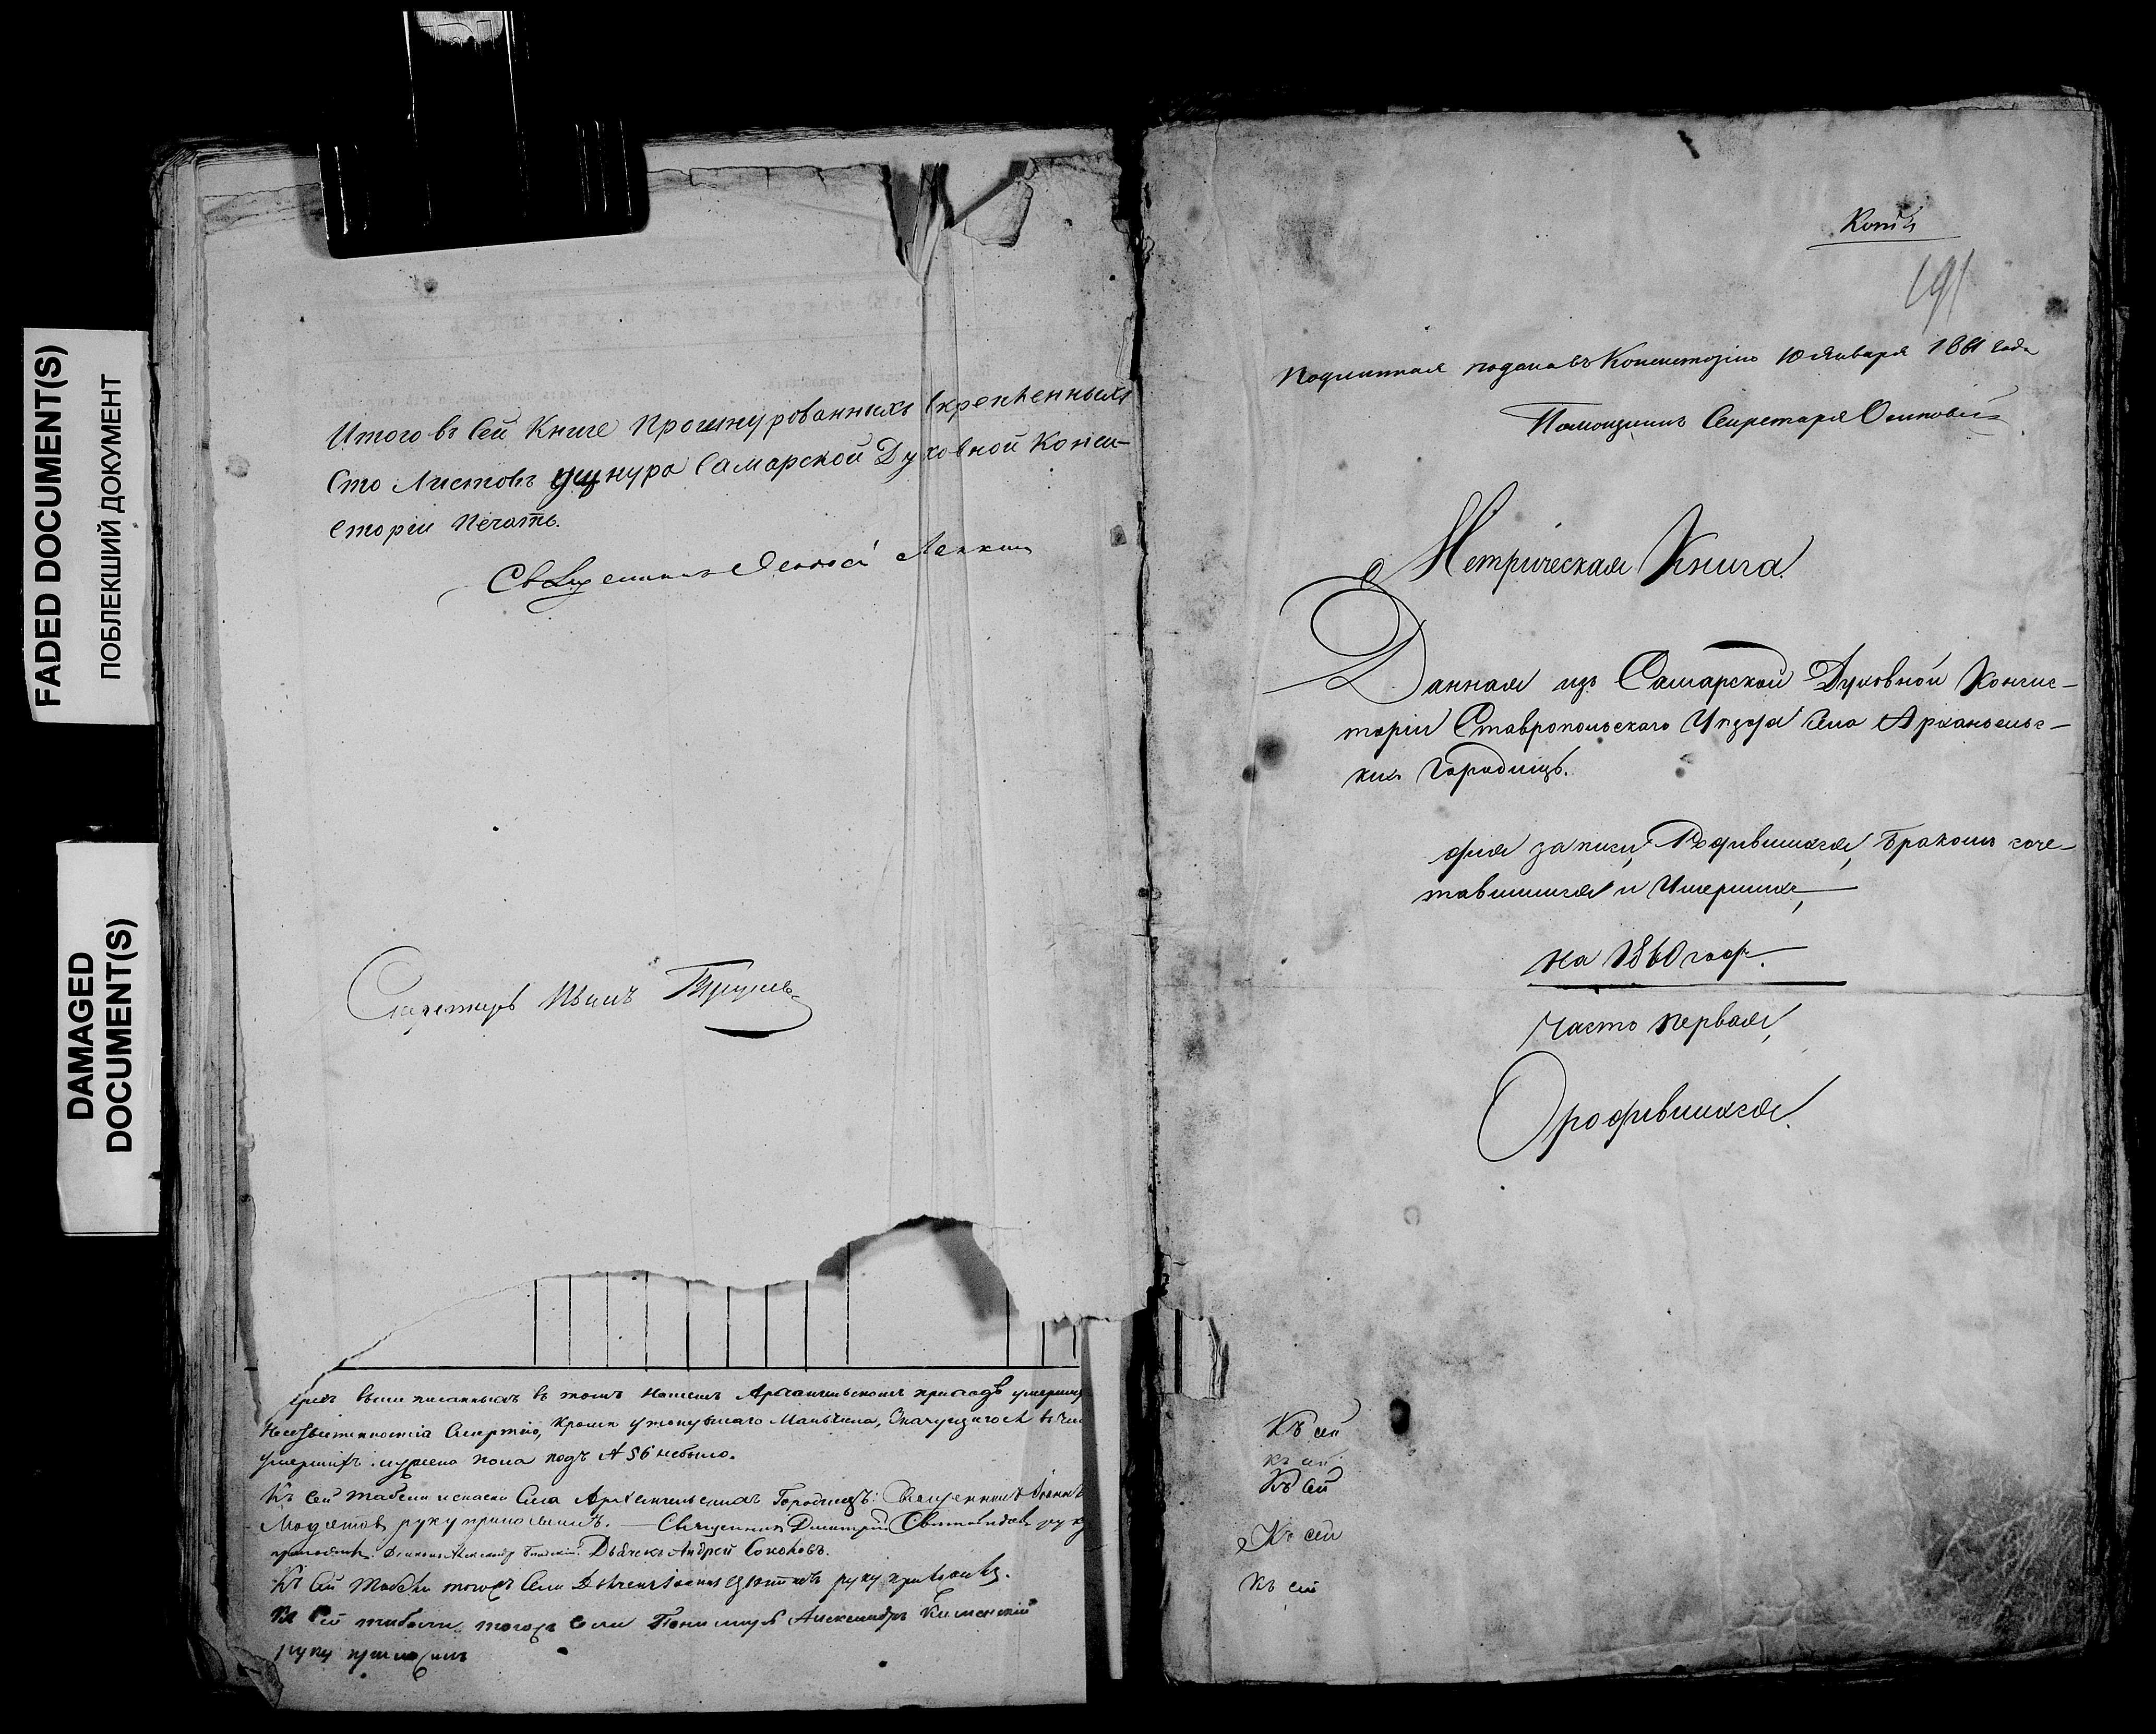 FADED DOCUMENT(S)
ПОБЛЕКШИЙ ДОКУМЕНТ
DAMAGED
DOCUMENT(S)
Итого въ Сей Книге Прошнурованныхъ Скрепленныхъ
Сто Листовъ у шнура Самарской Духовной Конси-
сторіи Печать.
Священникъ Алексѣй
Секретарь Иванъ
выше писанныхъ въ томъ нашемъ Архангельскомъ приходѣ умершихъ
Смертію, кромѣ утонувшаго въ
умершихъ мужеска пола подъ № 56 небыло.
Къ сей табели и списки Села Архангельскихъ Городищъ: Священникъ Іоаннъ
руку приложилъ. Священникъ Димитрій руку
приложилъ. Діаконъ Александръ Дьячекъ Андрей Соколовъ.
Къ сей Табели тогожъ Села руку приложилъ.
Къ Сей табели тогожъ Села Пономарь Александръ Каменскій
руку приложилъ
Копія
191
Подлинная подана въ Консисторію 10 Января 1861 года
Помощникъ Секретаря
Метрическая Книга
Данная изъ Самарской Духовной Консис-
торіи Ставропольскаго Уѣзда Села Архангельс-
кихъ Городищъ.
для записи, Родившихся, Бракомъ соче-
тавшихся и Умершихъ,
на 1860 годъ.
Часть первая,
О родившихся.
Къ сей
Къ сей
Къ сей
Къ сей
Къ сей